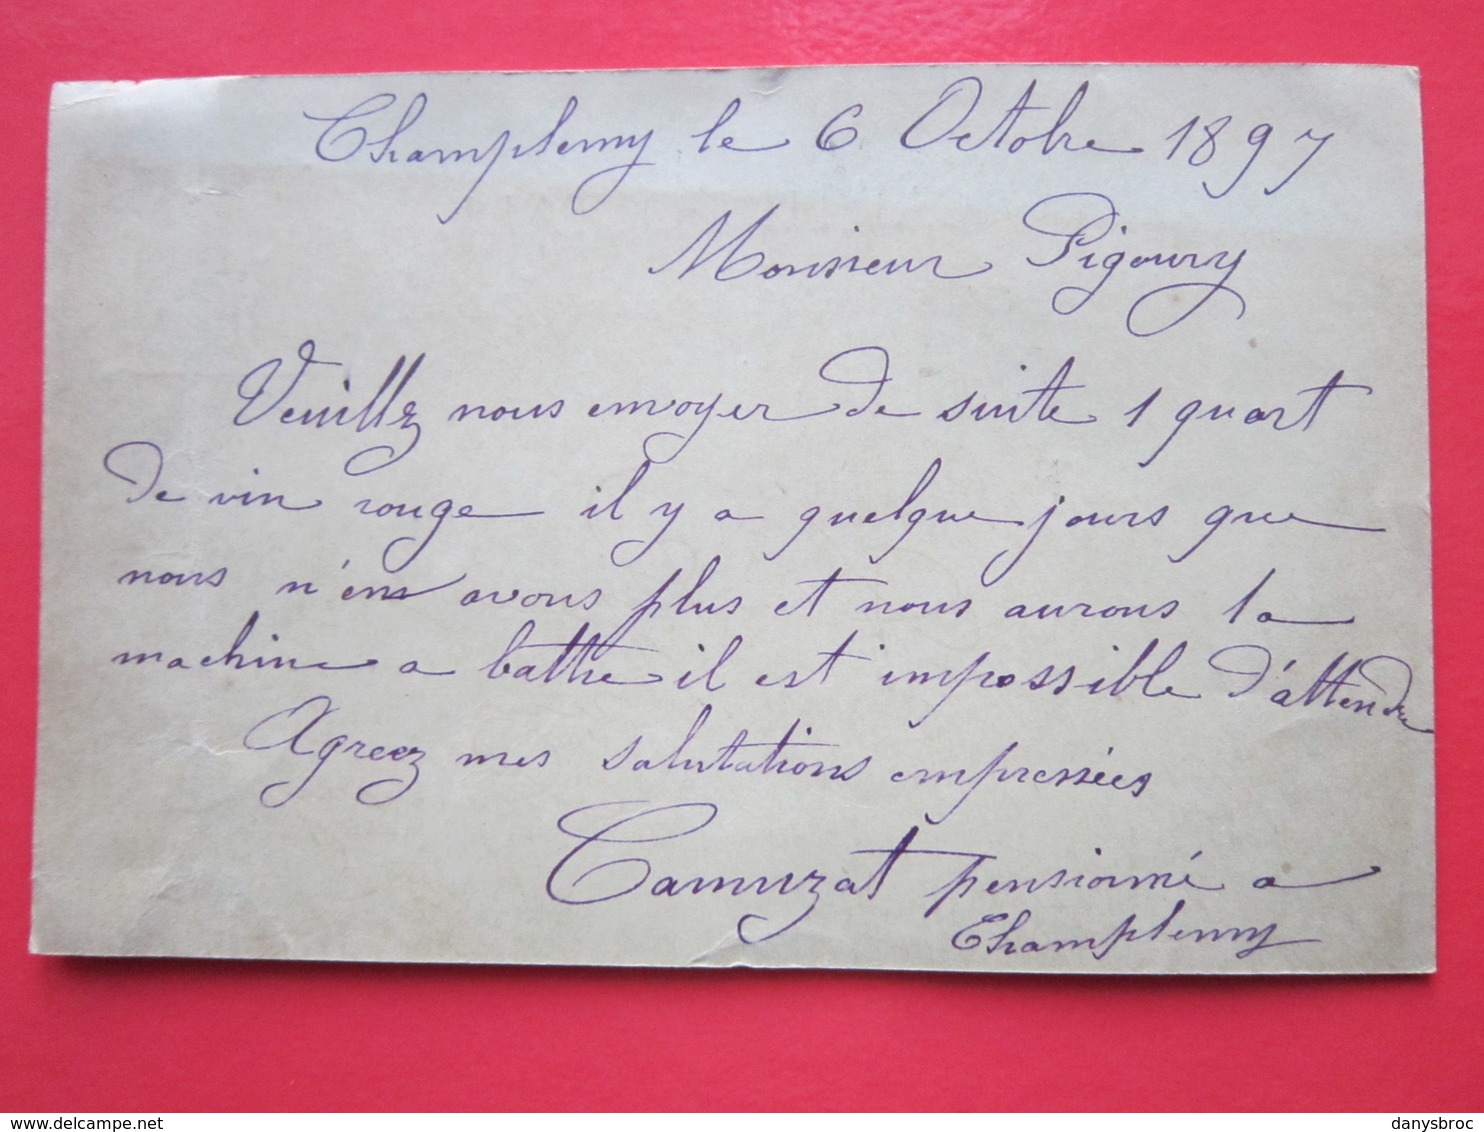 Champlemy le 6 Octobre 1897
Monsieur Pigoury
Veuillez nous envoyer de suite 1 quart
de vin rouge il y a quelque jours que
nous n'en avons plus et nous aurons la
machine a battre il est impossible d'attendre
Agreez mes salutations empressées
Camuzat pensionné a
Champlemy
delcampe.net
danysbroc